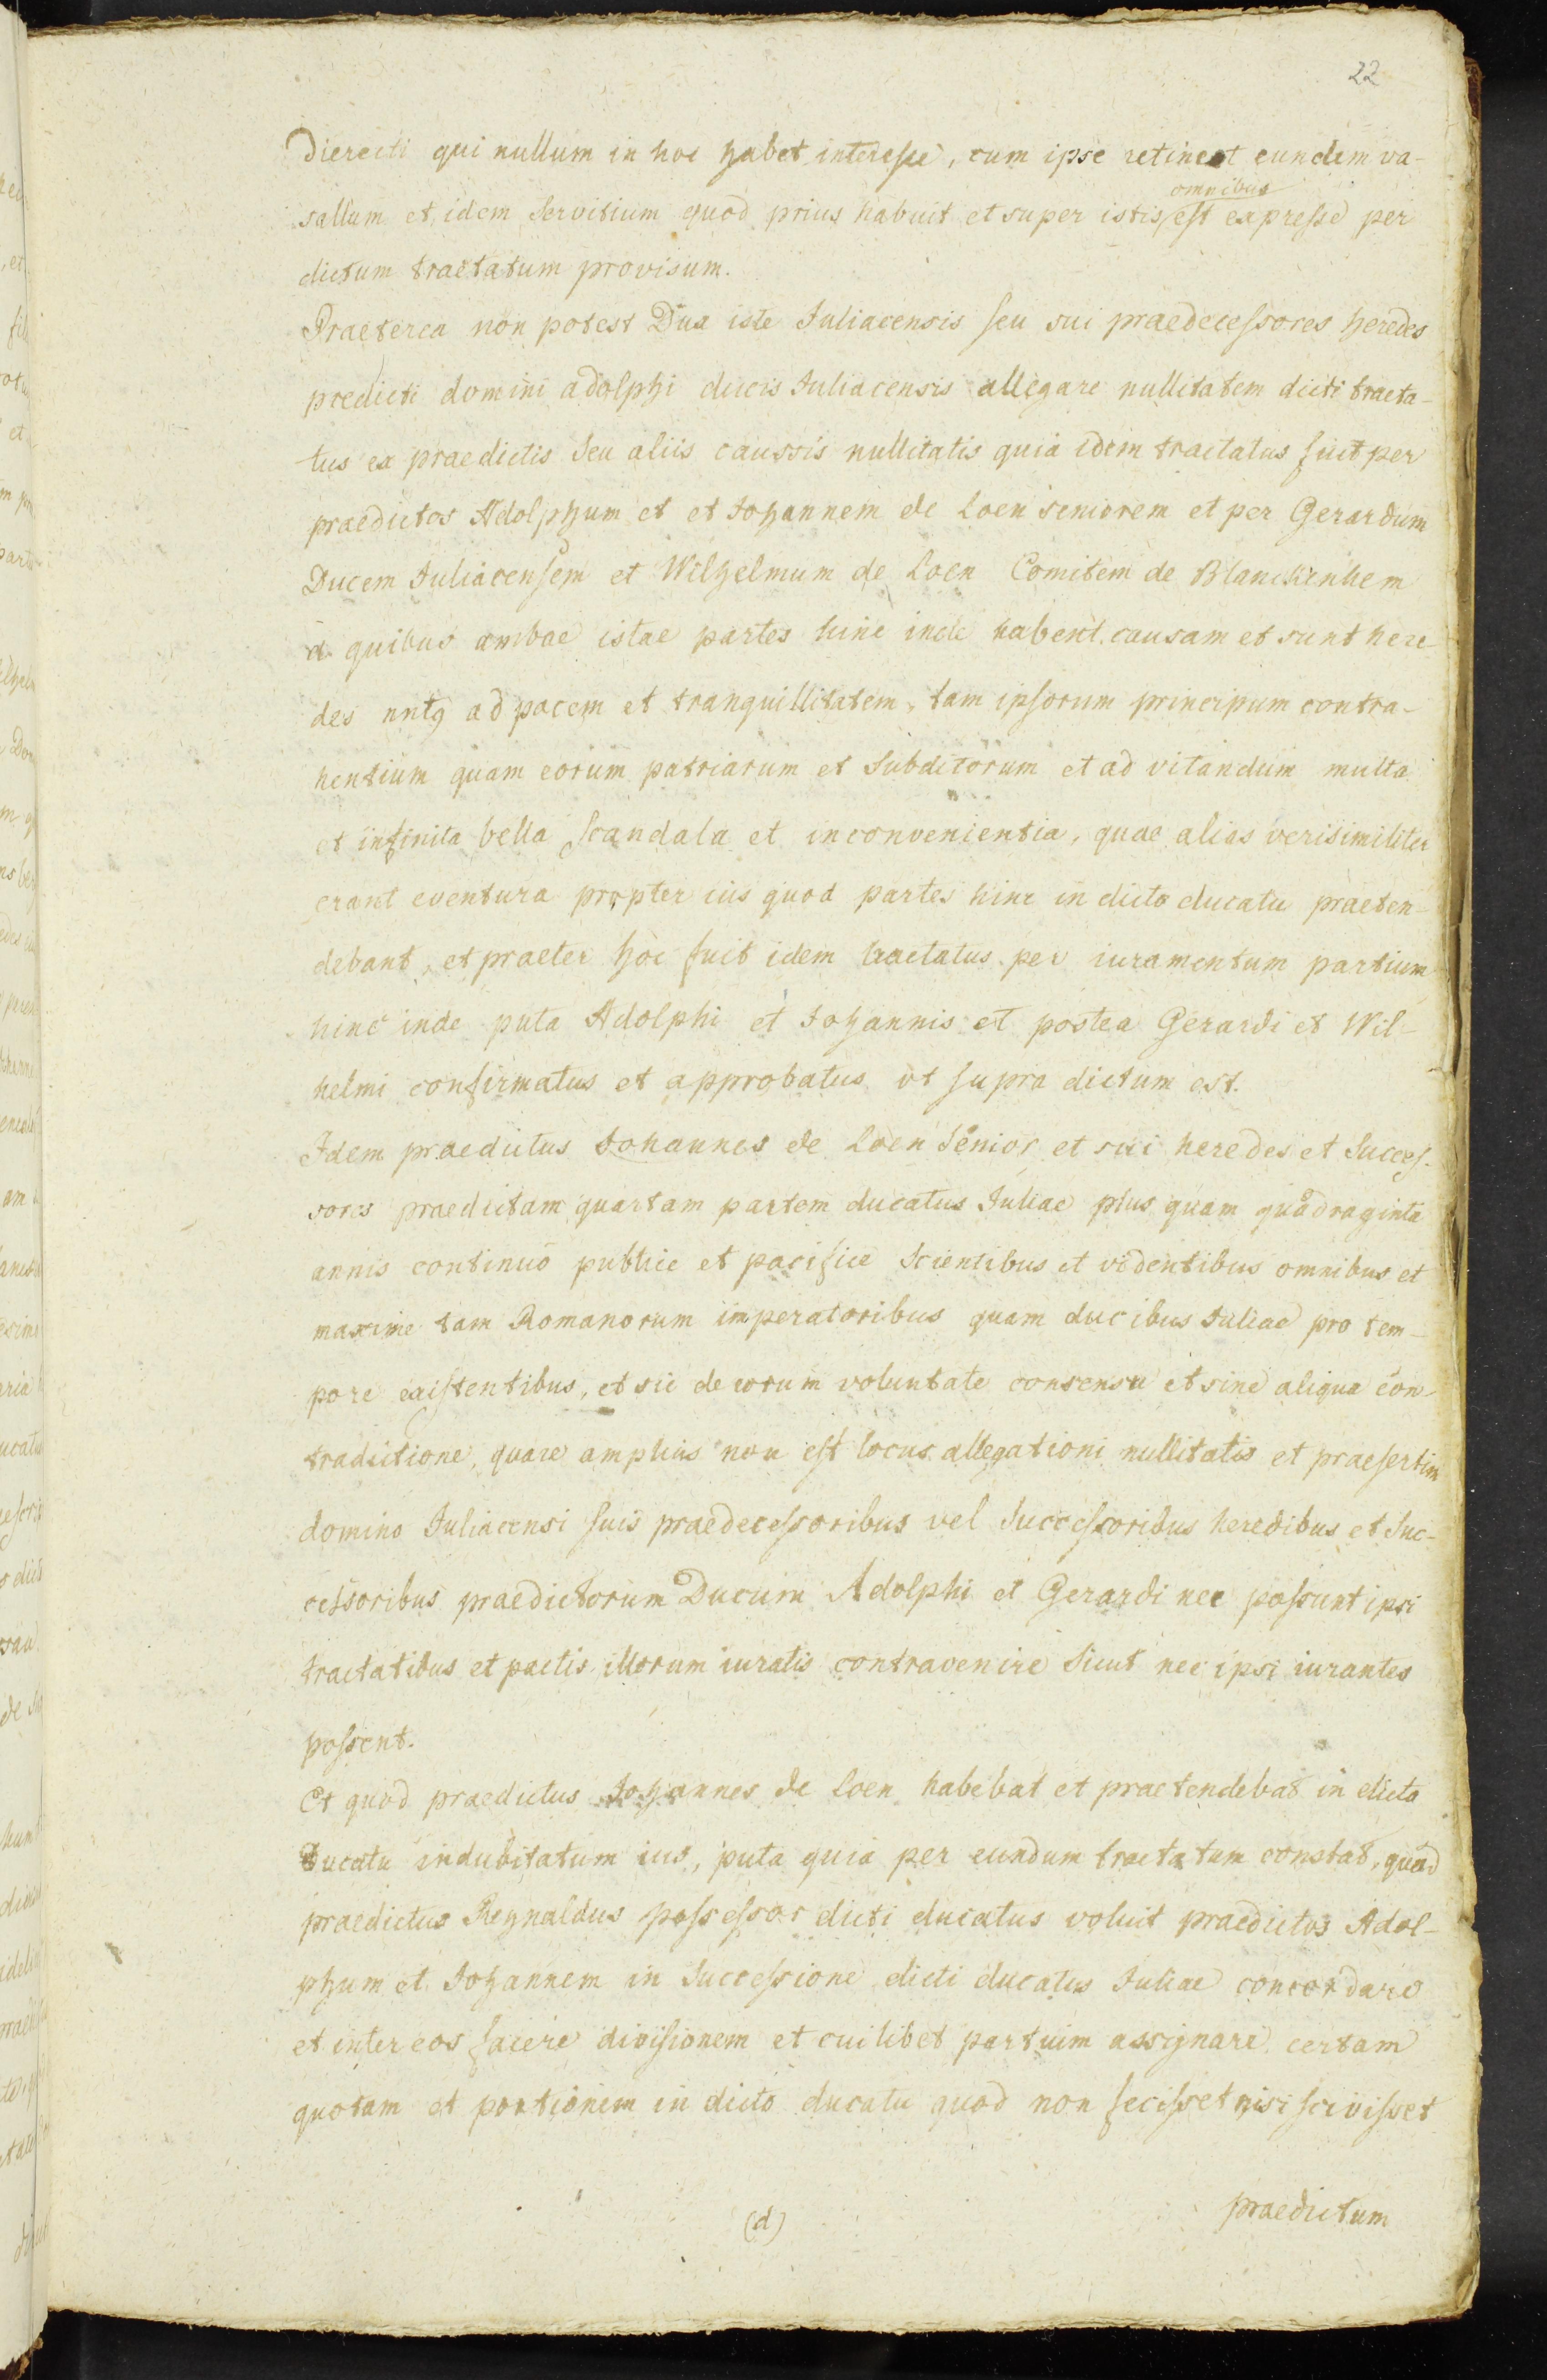 22
Diereiti qui nullum in hoc habet interesse, cum ipse retineat eundem va-
omnibus
sallum et idem servitium quod prius habuit et super istis est expresse per
dictum tractatum provisum.
Praeterea non potest Dux iste Juliacensis seu sui praedecessores heredes
predicti domini adolphi ducis Juliacensis allegare nullitatem dicti tracta-
tus ex praedictis seu aliis caussis nullitatis quia idem tractatus fuit per
praedictos Adolphum et et Johannem de Loen seniorem et per Gerardum
Ducem Juliacensem et Wilhelmum de Loen Comitem de Blanckenhem
a quibus ambae istae partes hinc inde habent causam et sunt here-
des ad pacem et tranquillitatem, tam ipsorum principum contra-
hentium quam eorum patriarum et subditorum et ad vitandum multa
et infinita bella scandala et inconvenientia, quae alias verisimiliter
erant eventura propter ius quod partes hinc in dicto ducatu praeten-
debant, et praeter hoc fuit idem tractatus per iuramentum partium
hinc inde puta Adolphi et Johannis et postea Gerardi et Wil-
helmi confirmatus et approbatus ut supra dictum est.
Idem praedictus Johannes de Loen senior et sui heredes et succes-
sores praedictam quartam partem ducatus Juliae plus quam quadraginta
annis continuo publice et pacifice scientibus et videntibus omnibus et
maxime tam Romanorum imperatoribus quam ducibus Juliae pro tem-
pore existentibus, et sic de eorum voluntate consensu et sine aliqua con-
tradictione, quare amplius non est locus allegationi nullitatis et praesertim
domino Juliacensi suis praedecessoribus vel successoribus heredibus et suc-
cessoribus praedictorum Ducum Adolphi et Gerardi nec possunt ipsi
tractatibus et pactis illorum iuratis contravenire sicut nec ipsi iurantes
possent.
Et quod praedictus Johannes de Loen habebat et praetendebat in dicto
Ducatu indubitatum ius, puta quia per eundum tractatum constat, quod
praedictus Reynaldus possessor dicti ducatus voluit praedictos Adol-
phum et Johannem in successione dicti ducatus Juliae concordare
et inter eos facere divisionem et cuilibet partuim assignare certam
quotam et portionem in dicto ducatu quod non fecisset nisi scivisset
(d)
praedictum